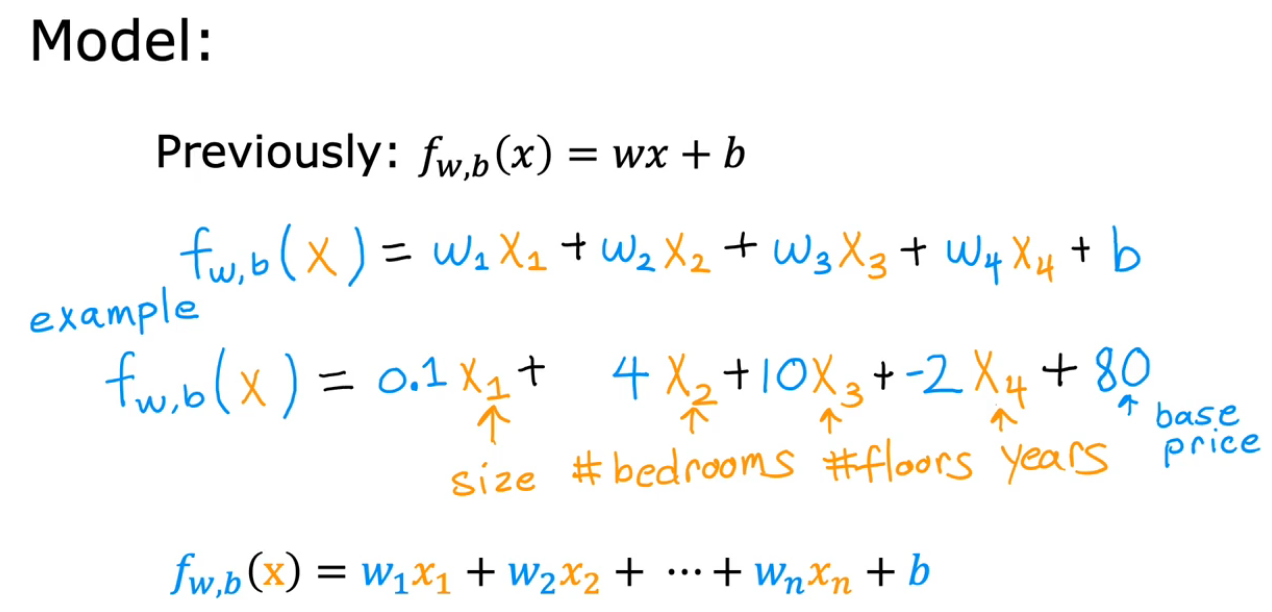 Model:
Previously: f_{w,b}(x) = wx + b
f_{w,b}(x) = w_1 x_1 + w_2 x_2 + w_3 x_3 + w_4 x_4 + b
example
f_{w,b}(x) = 0.1 x_1 + 4 x_2 + 10 x_3 + -2 x_4 + 80
↑ ↑ ↑ ↑ ↑ base
size #bedrooms #floors years price
f_{w,b}(x) = w_1 x_1 + w_2 x_2 + ⋯ + w_n x_n + b